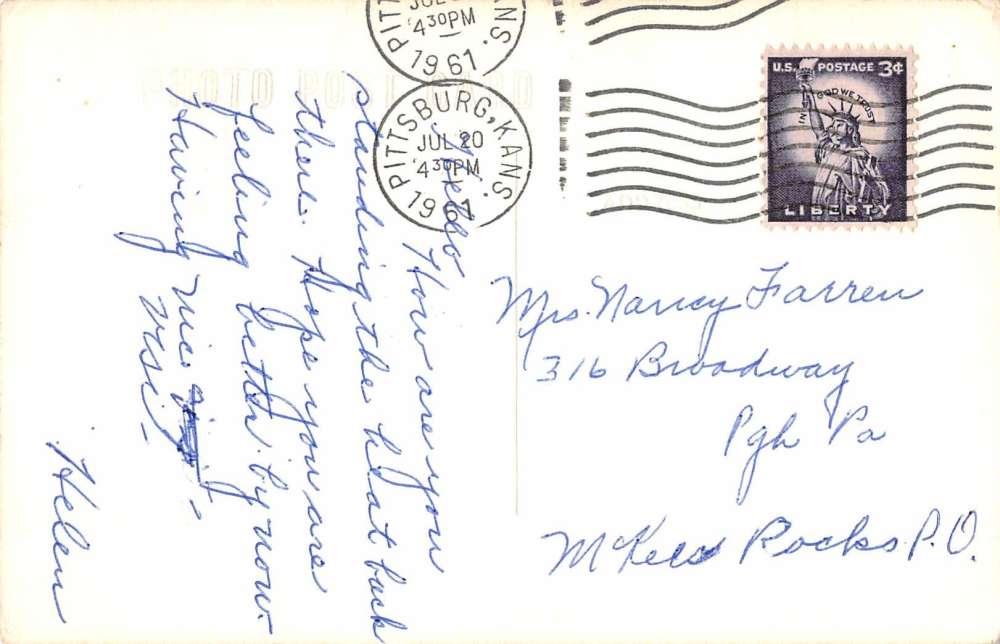 PHOTO POST CARD
JUL
4 30 PM
1961
PITTSBURG, KANS.
JUL 20
4 30 PM
1961
U.S. POSTAGE 3¢
IN GOD WE TRUST
LIBERTY
Hello
How are you
standing the heat back
there. Hope you are
feeling better by now.
Having nice
visi-
Helen
Mrs. Nancy Farren
316 Broadway
Pgh Pa
McKees Rocks P.O.